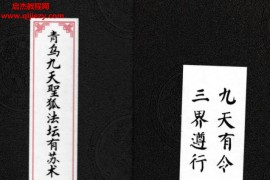 启杰教程网
www.qijiejc.com
青乌九天聖狐法坛有苏术
九天有令
三界遵行